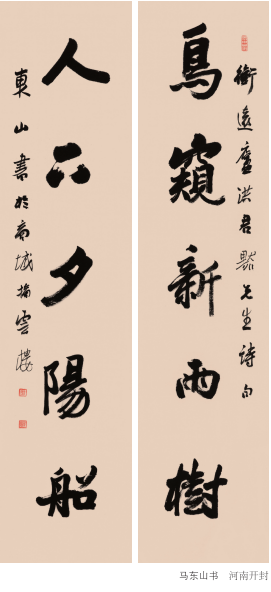 銜遠廬洪君默先生詩句
鳥窺新雨樹
人下夕陽船
東山書於商城雲樓
马东山书 河南开封